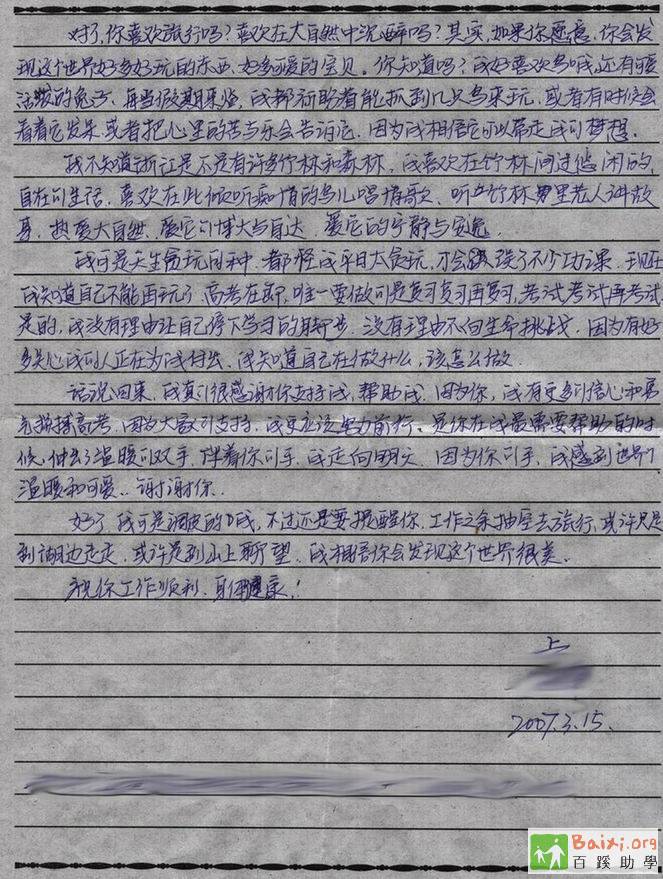 对了,你喜欢旅行吗?喜欢在大自然中沉醉吗?其实,如果你愿意,你会发
现这个世界好多好玩的东西,好多可爱的宝贝。你知道吗?我好喜欢鸟哦,还有可爱
活泼的兔子。每当假期来临,我都盼望着能抓到几只鸟来玩,或者有时候会
看着它发呆,或者把心里的苦与乐会告诉它。因为我相信它可以带走我的梦想。
我不知道浙江是不是有许多竹林和森林。我喜欢在竹林间过悠闲的,
自在的生活。喜欢在此倾听痴情的鸟儿唱情歌,听竹林里老人讲故
事,热爱大自然,爱它的博大与自达,爱它的宁静与安逸。
我可是天生贪玩的种,都怪我平日太贪玩,才会误了不少功课。现在
我知道自己不能再玩了,高考在即,唯一要做的是复习复习再复习,考试考试再考试
是的,我没有理由让自己停下学习的脚步,没有理由不向生命挑战,因为有好
多关心我的人正在为我付出。我知道自己在做什么,该怎么做。
话说回来,我真的很感谢你支持我,帮助我。因为你,我有更多的信心和勇
气拼搏高考,因为大家的支持,我更应该努力前行。是你在我最需要帮助的时
候,伸出了温暖的双手,伴着你的手,我走向明天。因为你的手,我感到世界的
温暖和可爱..谢谢你.
好了,我可是调皮的哦,不过还是要提醒你,工作之余抽空去旅行,或许只是
到湖边走走,或许是到山上眺望,我相信你会发现这个世界很美。
祝你工作顺利,身体健康!
上
2007.3.15.
Baixi.org
百蹊助学